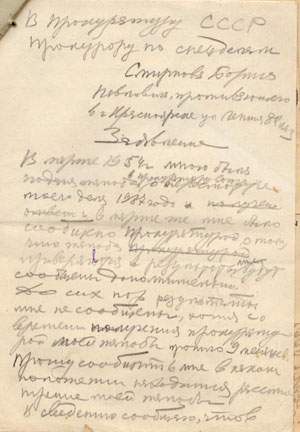 В Прокуратуру СССР
Прокурору по спецделам
Смирнова Бориса
Павловича, проживающего
в г. Красноярске ул Ленина
Заявление
В марте 1954г мною была
подана жалоба о пересмотре
моего дела 1938 года и
в марте же мне было
сообщено Прокуратурой о том,
что жалоба
проверяется и результаты будут
сообщены дополнительно.
До сих пор результаты
мне не сообщены, хотя со
времени получения прокурату-
рой моей жалобы прошло 9 месяцев.
Прошу сообщить мне в каком
положении находится рассмо-
трение моей жалобы.
К сведению сообщаю, что в